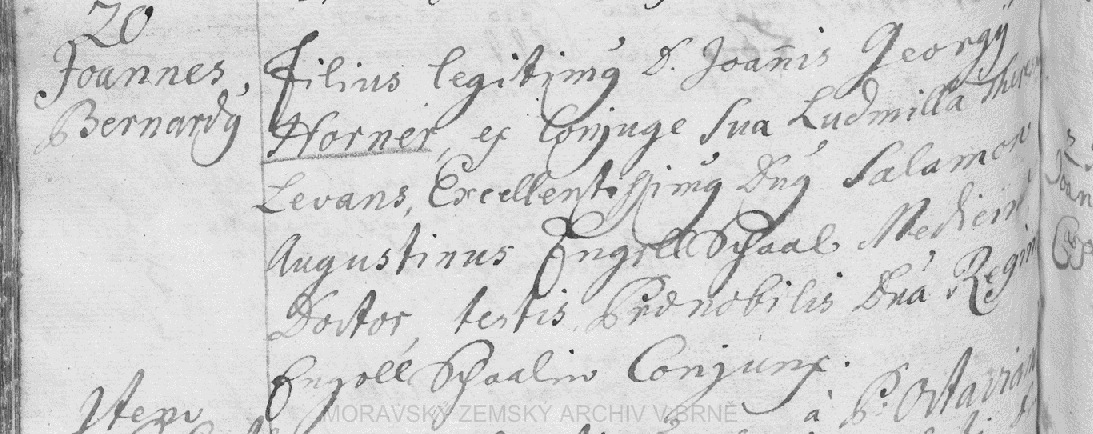 20
Joannes,
Bernardq
Filius legitimq D. Joañis Georgÿ
Horner, ex Conjuge sua Ludmilla There
Levans, Excellentissimq Dnq Salamon
Augustinus Engell Schaal Medicin
Doctor, testis Prænobilis Dnã Regin
Engell Schaalin Conjunx.
à P. Octavia
Item
MORAVSKÝ ZEMSKÝ ARCHIV V BRNĚ